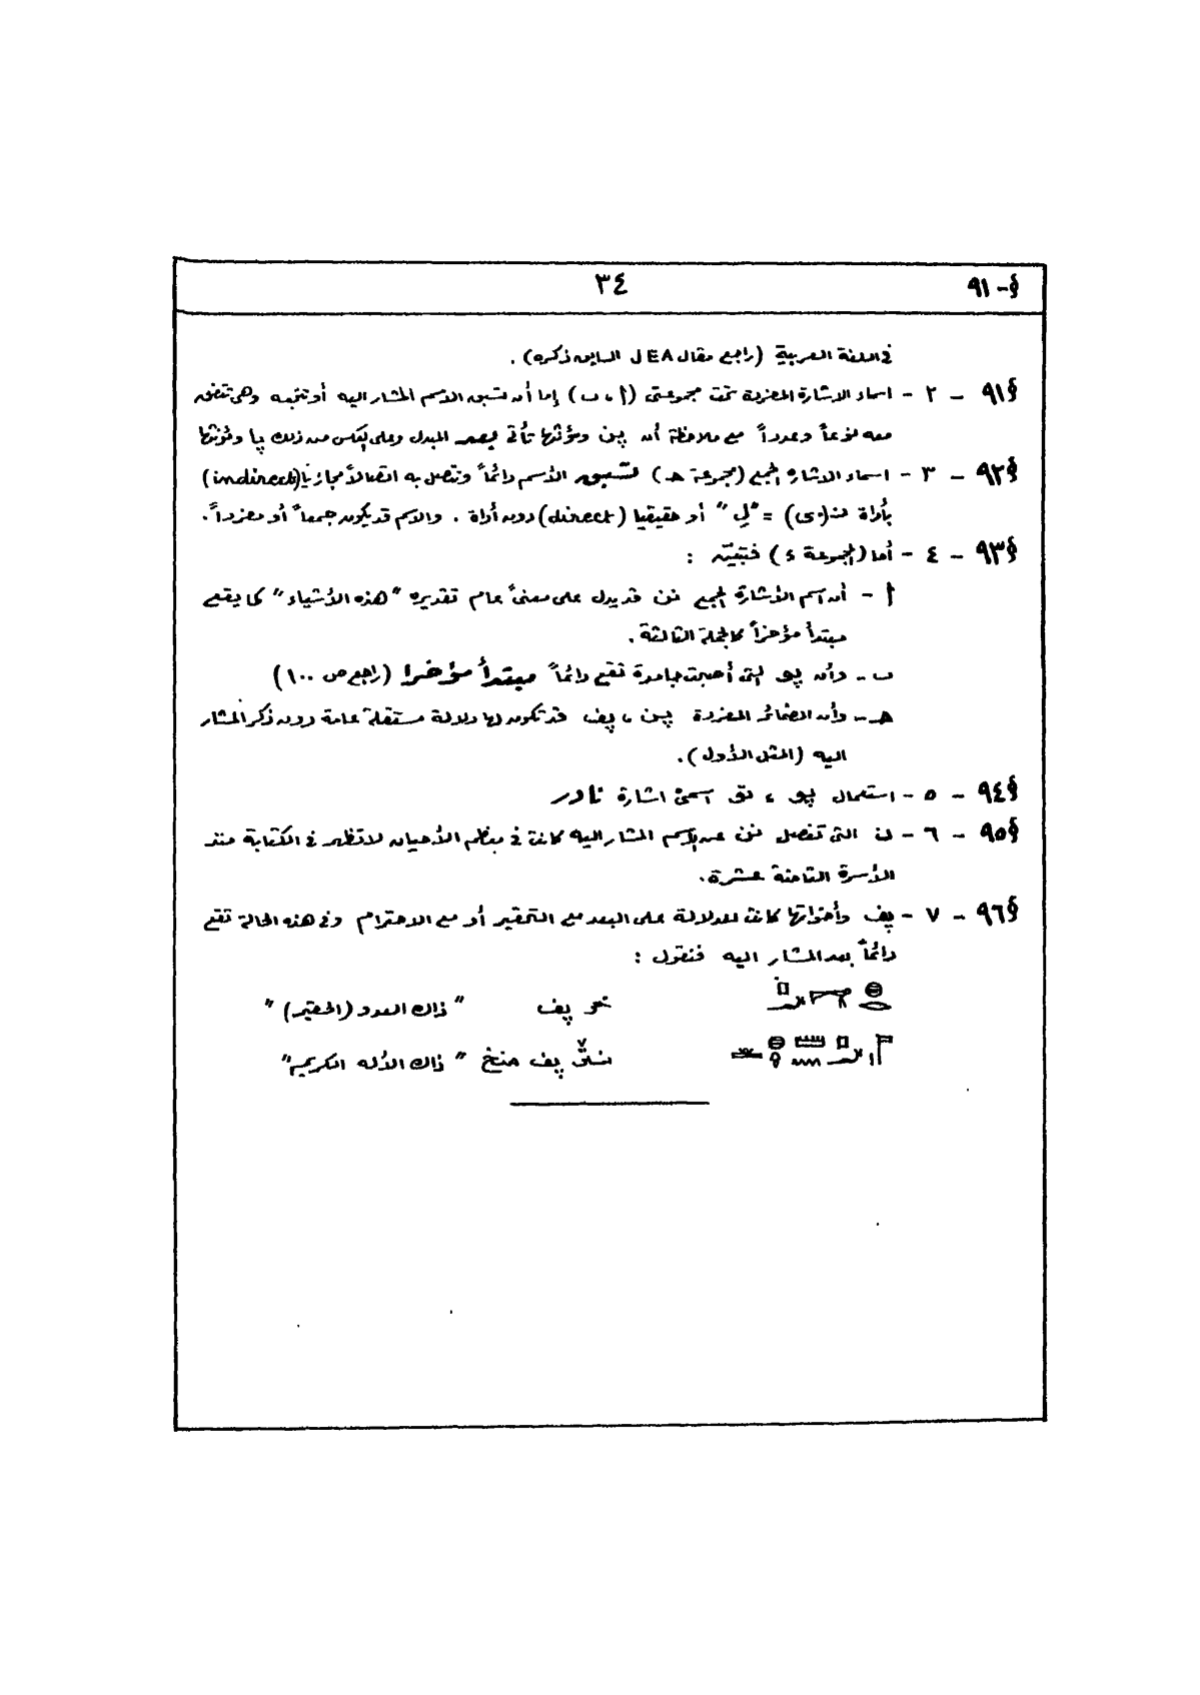 §-٩١
٣٤
في اللغة العربية (راجع مقال JEA السابق ذكره).
§٩١ - ٢ - اسماء الاشارة المفردة تحت مجموعتى (أ، ب) إما أن تسبق الاسم المشار اليه أو تتبعه وهى تتفق
معه نوعاً وعدداً مع ملاحظة أن پن ومؤنثها تأتى بعد المبدل وعلى العكس من ذلك پا ومؤنثها
§٩٢ - ٣ - اسماء الاشاره الجمع (مجموعة هـ) تسبق الأسم دائماً وتتصل به اتصالاً مجازيا (indirect)
بأداة ن(ى) = "لِ" أو حقيقيا (direct) دون أداة. والاسم قد يكون جمعاً أو مفرداً.
§٩٣ - ٤ - أما (المجموعة ء) فتبيّن :
أ - أن اسم الأشارة الجمع نن قد يدل على معنىً عام تقديره "هذه الأشياء" كما يقع
مبتدأ مؤخراً كالجملة الثالثة.
ب - وأن پو التى أصبحت جامدة تقع دائماً مبتدأ مؤخرا (راجع ص ١٠٠)
هـ - وأن الضمائر المفردة پن، پف قد تكون لها دلالة مستقلة عامة دون ذكر المشار
اليه (المثل الأول).
§٩٤ - ٥ - استعمال پو، تو اسمىْ اشارة نادر
§٩٥ - ٦ - ن التى تفصل نن عن الاسم المشار اليه كانت فى معظم الأحيان لا تظهر فى الكتابة منذ
الأسرة الثامنة عشرة.
§٩٦ - ٧ - پف وأخواتها كانت للدلالة على البعد مع التحقير أو مع الاحترام وفى هذه الحالة تقع
دائماً بعد المشار اليه فنقول :
خر پف "ذاك العدو (الحقير)"
پف منخ "ذاك الأله الكريم"